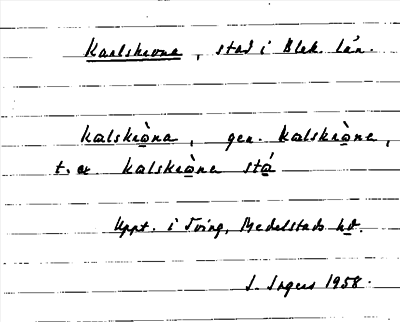 Karlskrona, stad i Blek. län.
kalskròna, gen. kalskròna,
t. ex kalskròna stá
Uppt. i Tving, Medelstads hd.
I. Ingers 1958.